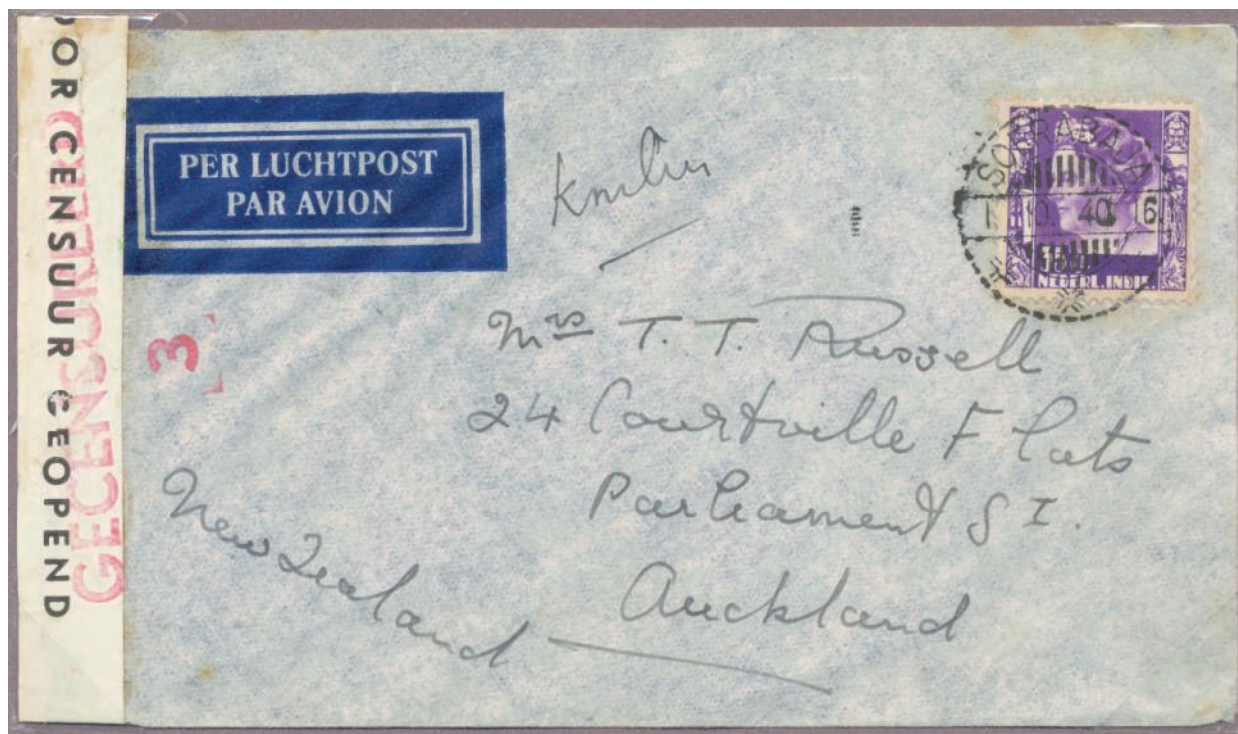 DOOR CENSUUR GEOPEND
GECENSUREERD
PER LUCHTPOST
PAR AVION
3
SOERABAJA
10. 40. 16
NEDERL. INDIE.
Mrs T. T. Russell
24 Courtville Flats
Parliament St.
Auckland
New Zealand